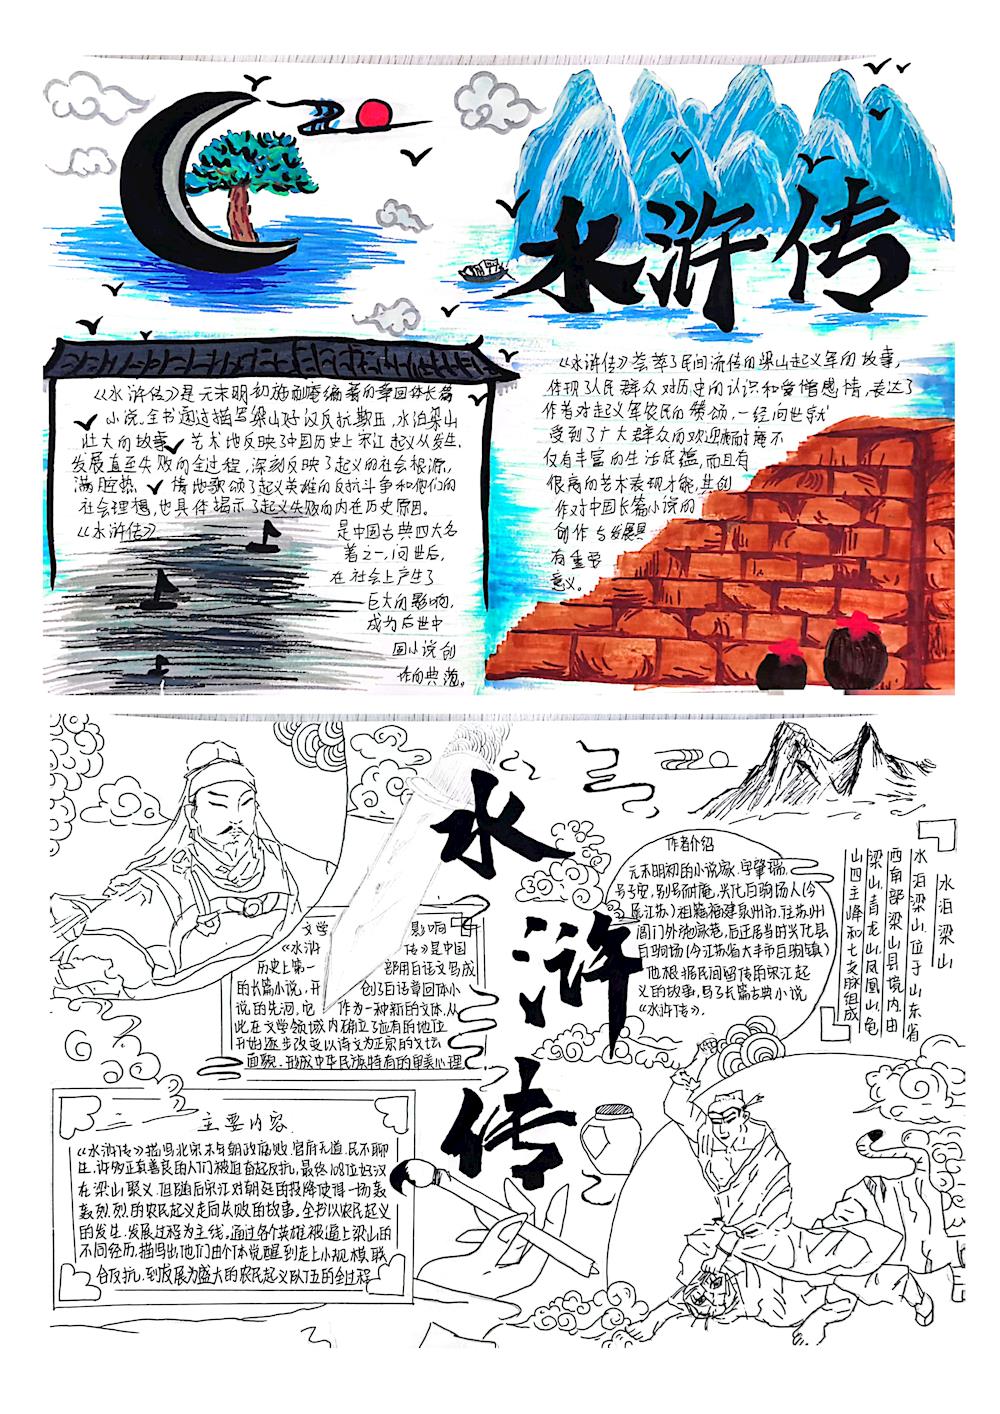 水浒传
《水浒传》是元末明初施耐庵编著的章回体长篇
小说.全书通过描写梁山好汉反抗欺压,水泊梁山
壮大的故事 艺术地反映了中国历史上宋江起义从发生.
发展直至失败的全过程,深刻反映了起义的社会根源,
满腔热 情地歌颂了起义英雄的反抗斗争和他们的
社会理想,也具体揭示了起义失败的内在历史原因。
《水浒传》 是中国古典四大名
著之一,问世后,
在社会上产生了
巨大的影响,
成为后世中
国小说创
作的典范。
《水浒传》荟萃了民间流传的梁山起义军的故事,
体现了人民群众对历史的认识和爱憎感情,表达了
作者对起义军农民的赞颂,一经问世就
受到了广大群众的欢迎施耐庵不
仅有丰富的生活底蕴,而且有
很高的艺术表现才能,其创
作对中国长篇小说的
创作与发展具
有重要
意义。
水浒传
文学 影响
《水浒 传》是中国
历史上第一 部用白话文写成
的长篇小说,开 创了白话章回体小
说的先河,它 作为一种新的文体,从
此在文学领域内确立了应有的地位
开始逐步改变以诗文为正宗的文坛
面貌.形成中华民族特有的审美心理
作者介绍
元末明初的小说家.字肇瑞.
号子安,别号耐庵,兴化白驹场人(今
属江苏)祖籍福建泉州市,住苏州
阊门外施家巷,后迁居当时兴化县
白驹场(今江苏省大丰市白驹镇)
他根据民间留传的宋江起
义的故事,写了长篇古典小说
《水浒传》.
水泊梁山
水泊梁山.位于山东省
西南部梁山县境内.由
梁山.青龙山.凤凰山.龟
山四主峰和七支脉组成
三 主要内容
《水浒传》描写北宋末年朝政腐败.官府无道.民不聊
生.许多正直善良的人们被迫奋起反抗,最终108位好汉
在梁山聚义.但随后宋江对朝廷的投降使得一场轰
轰烈.烈的农民起义走向失败的故事,全书以农民起义
的发生.发展过程为主线,通过各个英雄被逼上梁山的
不同经历.描写出他们由个体觉醒到走上小规模联
合反抗.到发展为盛大的农民起义队伍的全过程